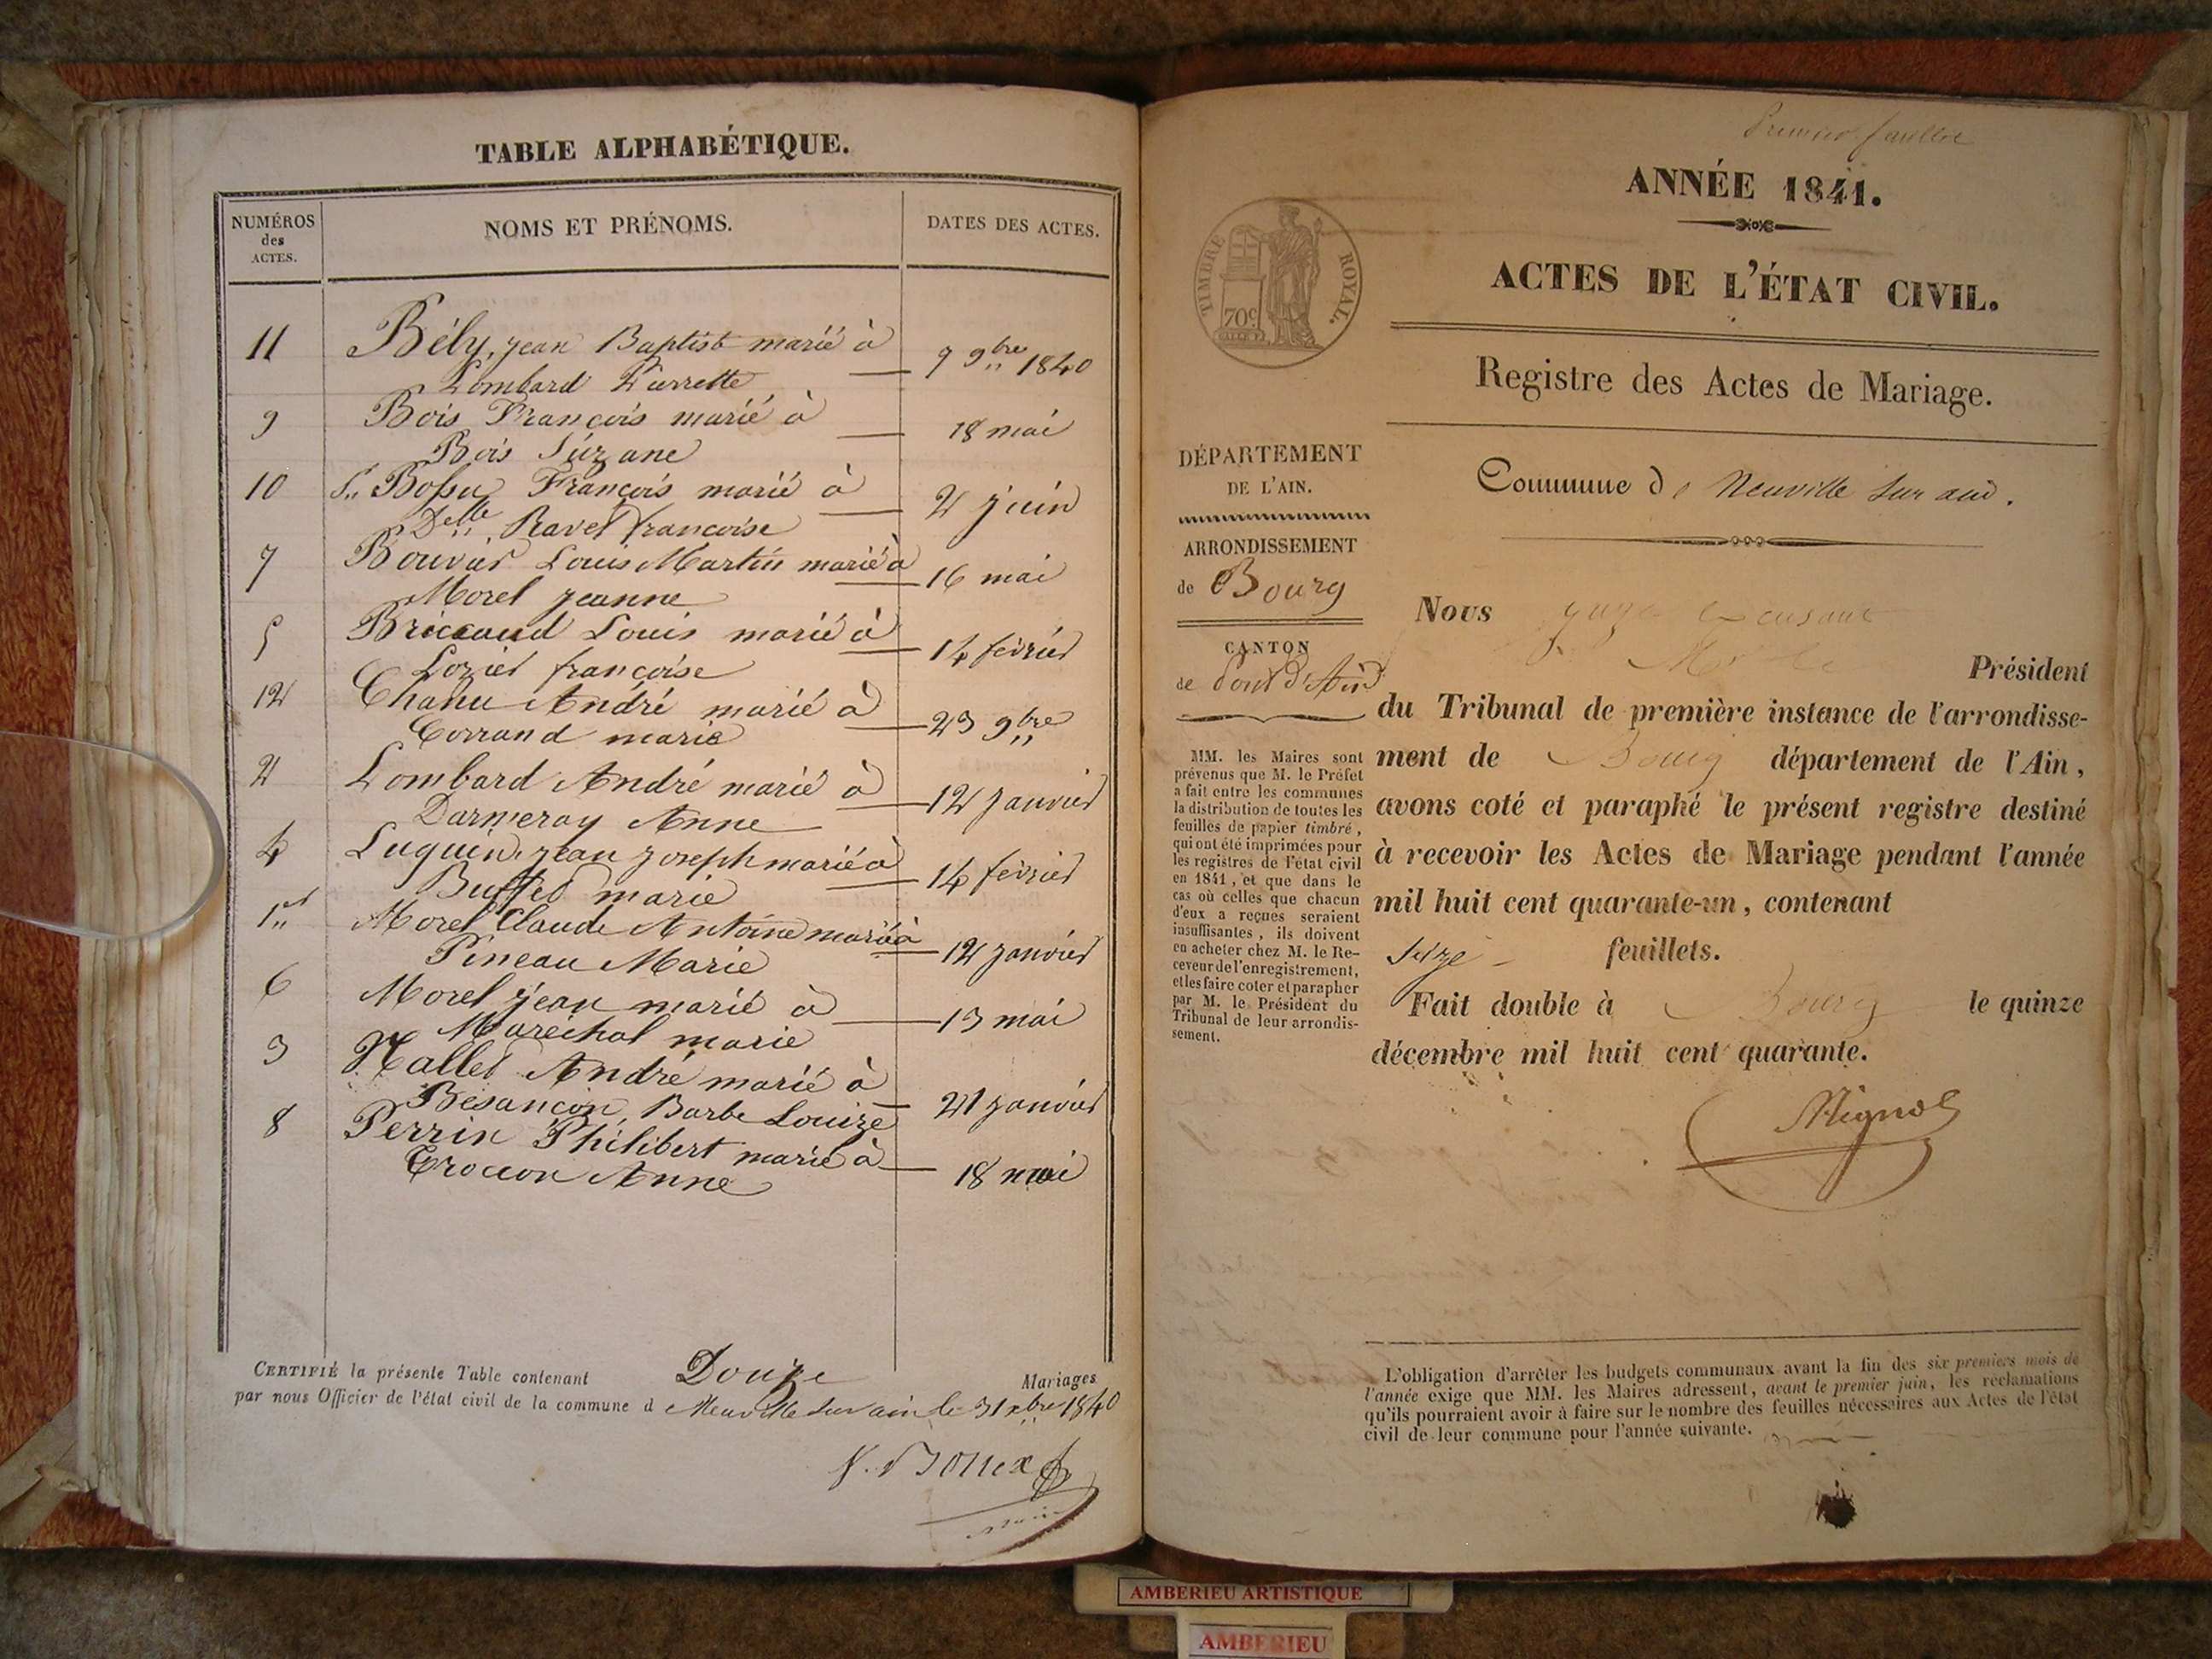 TABLE ALPHABÉTIQUE.
NUMÉROS
des
ACTES.
NOMS ET PRÉNOMS.
DATES DES ACTES.
11 Bély, jean Baptist marié à
Lombard Pierrette 7 9bre 1840
9 Bois François marié à
Bois Suzane 18 mai
10 Sr Bossu François marié à
Delle Ravet françoise 2 juin
7 Bouvard Louis Martin marié à
Morel jeanne 16 mai
5 Briccaud Louis marié à
Lozier françoise 14 février
12 Chanu André marié à
Corrand marie 23 9bre
2 Lombard André marié à
Darmeray Anne 12 janvier
4 Luguin, jean joseph marié à
Buffet marie 14 février
1er Morel Claude Antoine marié à
Pineau Marie 12 janvier
6 Morel jean marié à
Maréchal marie 13 mai
3 Nallet André marié à
Besançon, Barbe Louize 21 janvier
8 Perrin Philibert marié à
Troccon Anne 18 mai
CERTIFIÉ la présente Table contenant Douze Mariages
par nous Officier de l'état civil de la commune d Neuville sur ain le 31 xbre 1840
Premier feuillet
ANNÉE 1841.
ACTES DE L'ÉTAT CIVIL.
TIMBRE ROYAL.
70c
Registre des Actes de Mariage.
Commune de Neuville sur ain.
DÉPARTEMENT
DE L'AIN.
ARRONDISSEMENT
de Bourg
CANTON
de Pont d'Ain
MM. les Maires sont
prévenus que M. le Préfet
a fait entre les communes
la distribution de toutes les
feuilles de papier timbré,
qui ont été imprimées pour
les registres de l'état civil
en 1841, et que dans le
cas où celles que chacun
d'eux a reçues seraient
insuffisantes, ils doivent
en acheter chez M. le Re-
ceveur de l'enregistrement,
et les faire coter et parapher
par M. le Président du
Tribunal de leur arrondis-
sement.
Nous juge
Président
du Tribunal de première instance de l'arrondisse-
ment de Bourg département de l'Ain,
avons coté et paraphé le présent registre destiné
à recevoir les Actes de Mariage pendant l'année
mil huit cent quarante-un, contenant
Seize feuillets.
Fait double à Bourg le quinze
décembre mil huit cent quarante.
Mignot
L'obligation d'arrêter les budgets communaux avant la fin des six premiers mois de
l'année exige que MM. les Maires adressent, avant le premier juin, les réclamations
qu'ils pourraient avoir à faire sur le nombre des feuilles nécessaires aux Actes de l'état
civil de leur commune pour l'année suivante.
AMBERIEU ARTISTIQUE
AMBERIEU